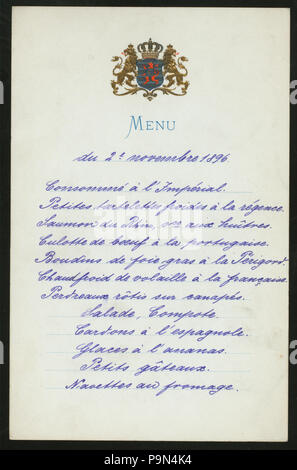 MENU
du 2ᵗ novembre 1896
Consommé à l'Impérial.
Petites tartelettes froides à la régence.
Saumon du Rhin, sce aux huîtres.
Culotte de bœuf à la portugaise.
Boudins de foie gras à la Périgord
Chaudfroid de volaille à la française
Perdreaux rôtis sur canapés.
Salade, Compote
Cardons à l'espagnole.
Glaces à l'ananas.
Petits gâteaux.
Navettes au fromage.
alamy
Image ID: P9N4K4
www.alamy.com